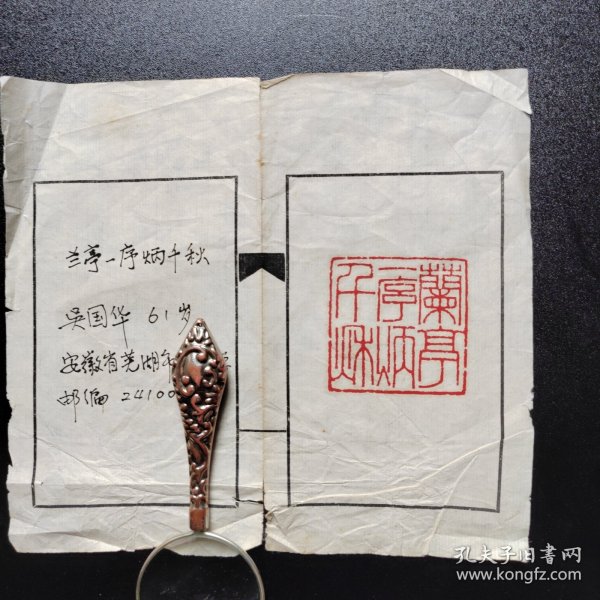 兰亭一序炳千秋
吴国华 61岁
安徽省芜湖市
邮编 24100
蘭亭
一序炳
千秌
孔夫子旧书网
www.kongfz.com